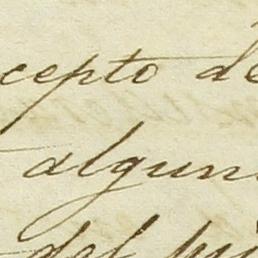 cepto de
algun
del